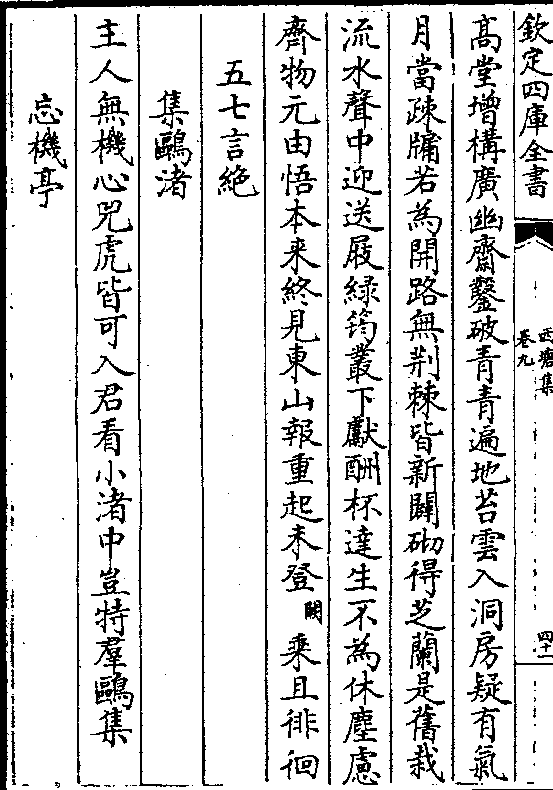 欽定四庫全書
西塘集
卷九
四十一
高堂增構廣幽齋鑿破青青遍地苔雲入洞房疑有氣
月當疎牗若為開路無荆棘皆新闢砌得芝蘭是舊栽
流水聲中迎送屐綠筠叢下獻酬杯達生不為休塵慮
齊物元由悟本来終見東山報重起未登闕乘且徘徊
五七言絶
集鷗渚
主人無機心兕虎皆可入君看小渚中豈特羣鷗集
忘機亭